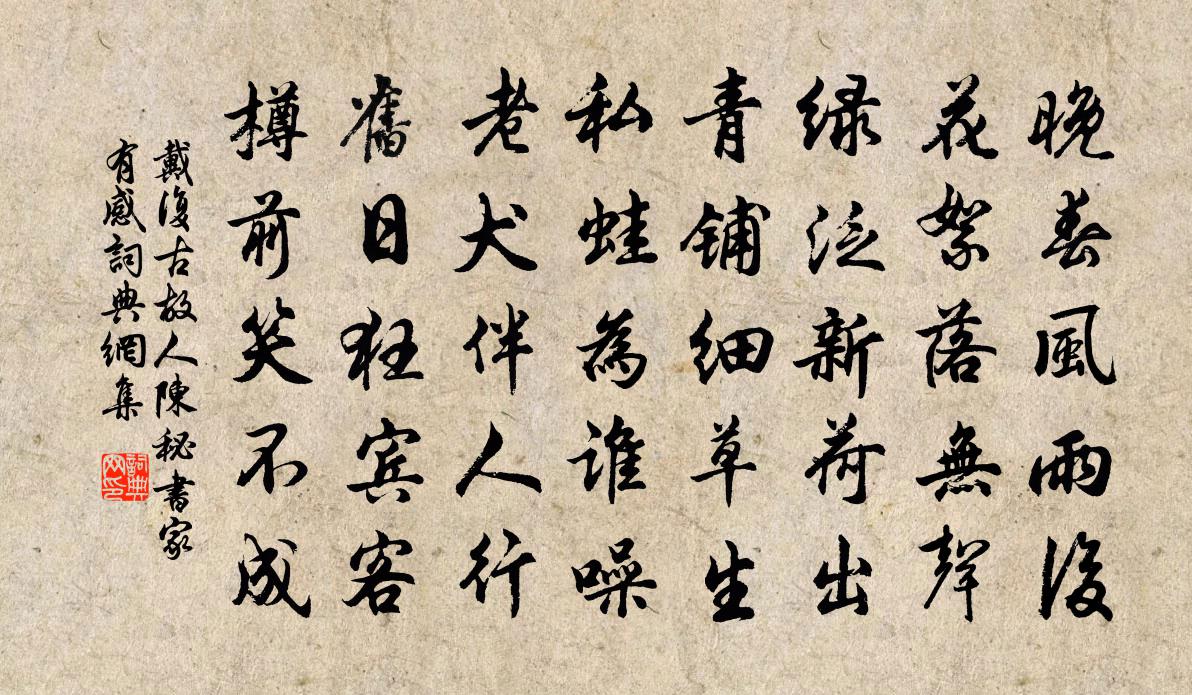 晚春風雨後
花絮落無聲
绿泛新荷出
青铺细草生
私蛙為誰噪
老犬伴人行
舊日狂宾客
樽前笑不成
戴復古故人陳秘書家
有感詞典網集
詞典
网印